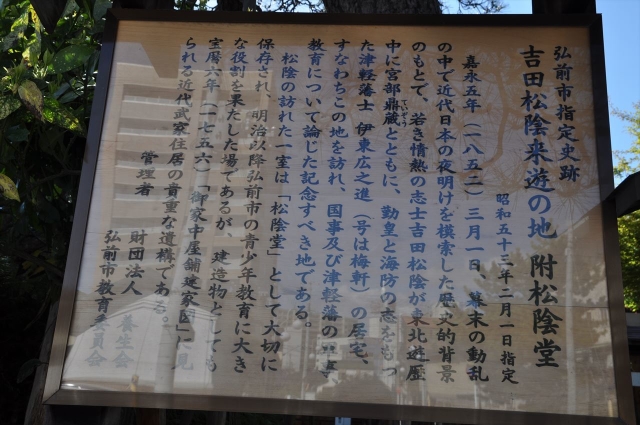 弘前市指定史跡
吉田松陰来遊の地 附松陰堂
昭和五十三年二月一日指定
嘉永五年（一八五二）三月一日、幕末の動乱
の中で近代日本の夜明けを模索した歴史的背景
のもとで、若き情熱の志士吉田松陰が東北遊歴
中に宮部鼎蔵とともに、勤皇と海防の志をもっ
た津軽藩士 伊東広之進（号は梅軒）の居宅、
すなわちこの地を訪れ、国事及び津軽藩の軍事
教育について論じた記念すべき地である。
松陰の訪れた一室は「松陰堂」として大切に
保存され、明治以降弘前市の青少年教育に大き
な役割を果たした場であるが、建造物としても
宝暦六年（一七五六）「御家中屋舗建家図」に見
られる近代武家住居の貴重な遺構である。
管理者 財団法人 養生会
弘前市教育委員会